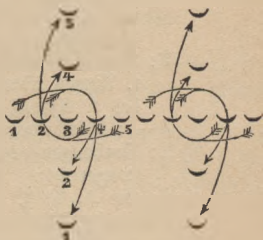 5
4
1 2 3 4 5
2
1